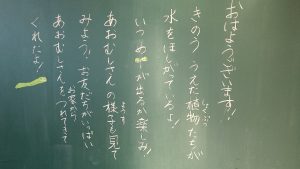 おはようございます！！
きのう うえた植物たちが
しょくぶつ
水をほしがってるよ！
いつ め が出るか楽しみ！
あおむしさんの様子も見て
ようす
みよう！お友だちがいっぱい
お家から
あおむしさんをつれてきて
くれたよ！